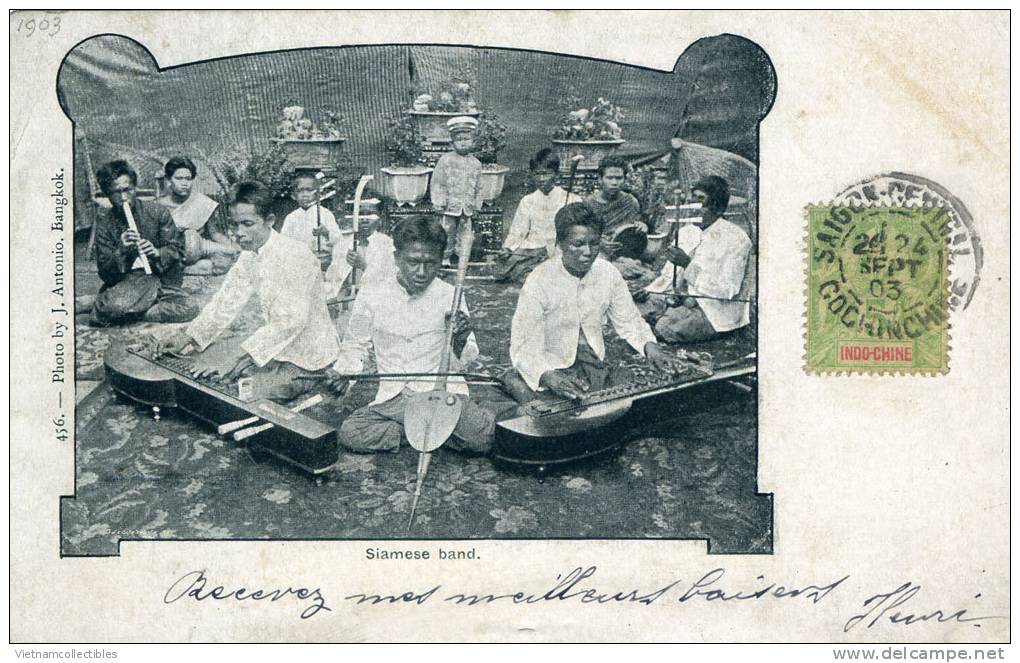 1903
456. — Photo by J. Antonio. Bangkok.
SAIGON-CENTRAL
24
SEPT
03
COCHINCHINE
INDO-CHINE
Siamese band.
Recevez mes meilleurs baisers
Henri
Vietnamcollectibles
delcampe.net